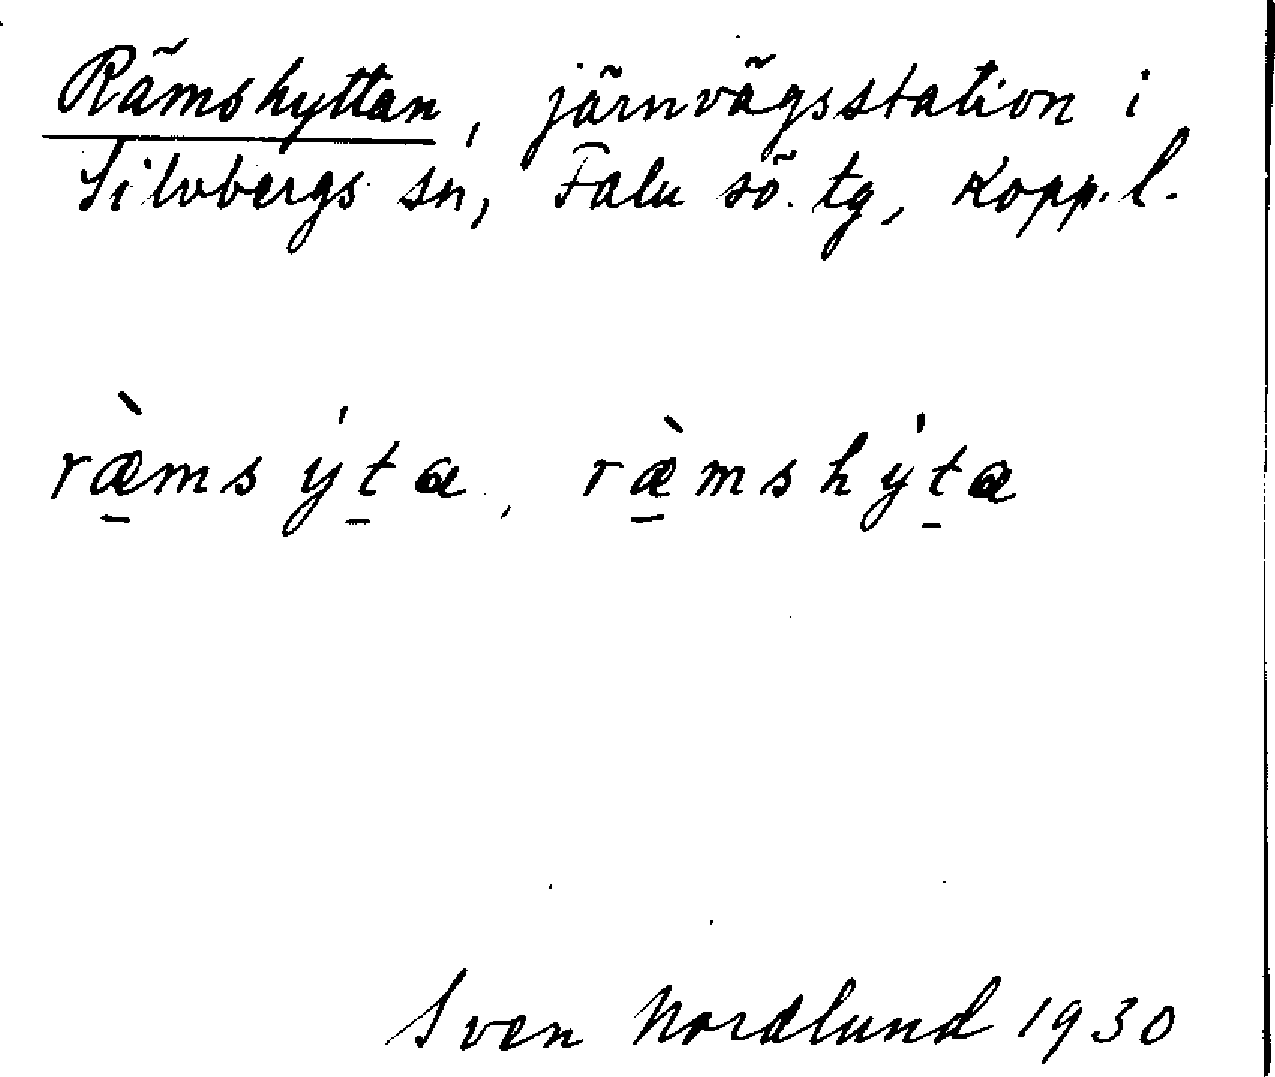 Rämshyttan, järnvägsstation i
Silvbergs sn, Falu sö. tg, Kopp. l.
ræ̠̀msýt̠a, ræ̠̀mshýt̠a
Sven Nordlund 1930